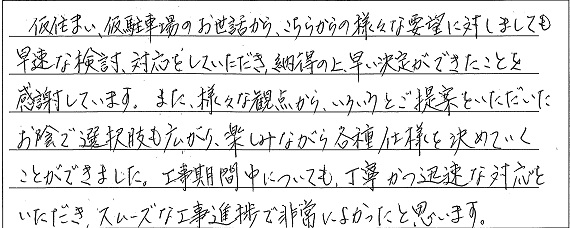 仮住まい、仮駐車場のお世話から、こちらからの様々な要望に対しましても
早速な検討、対応をしていただき、納得の上、早い決定ができたことを
感謝しています。また、様々な観点から、いろいろとご提案をいただいた
お陰で選択肢も広がり、楽しみながら各種仕様を決めていく
ことができました。工事期間中についても、丁寧かつ迅速な対応を
いただき、スムーズな工事進捗で非常によかったと思います。